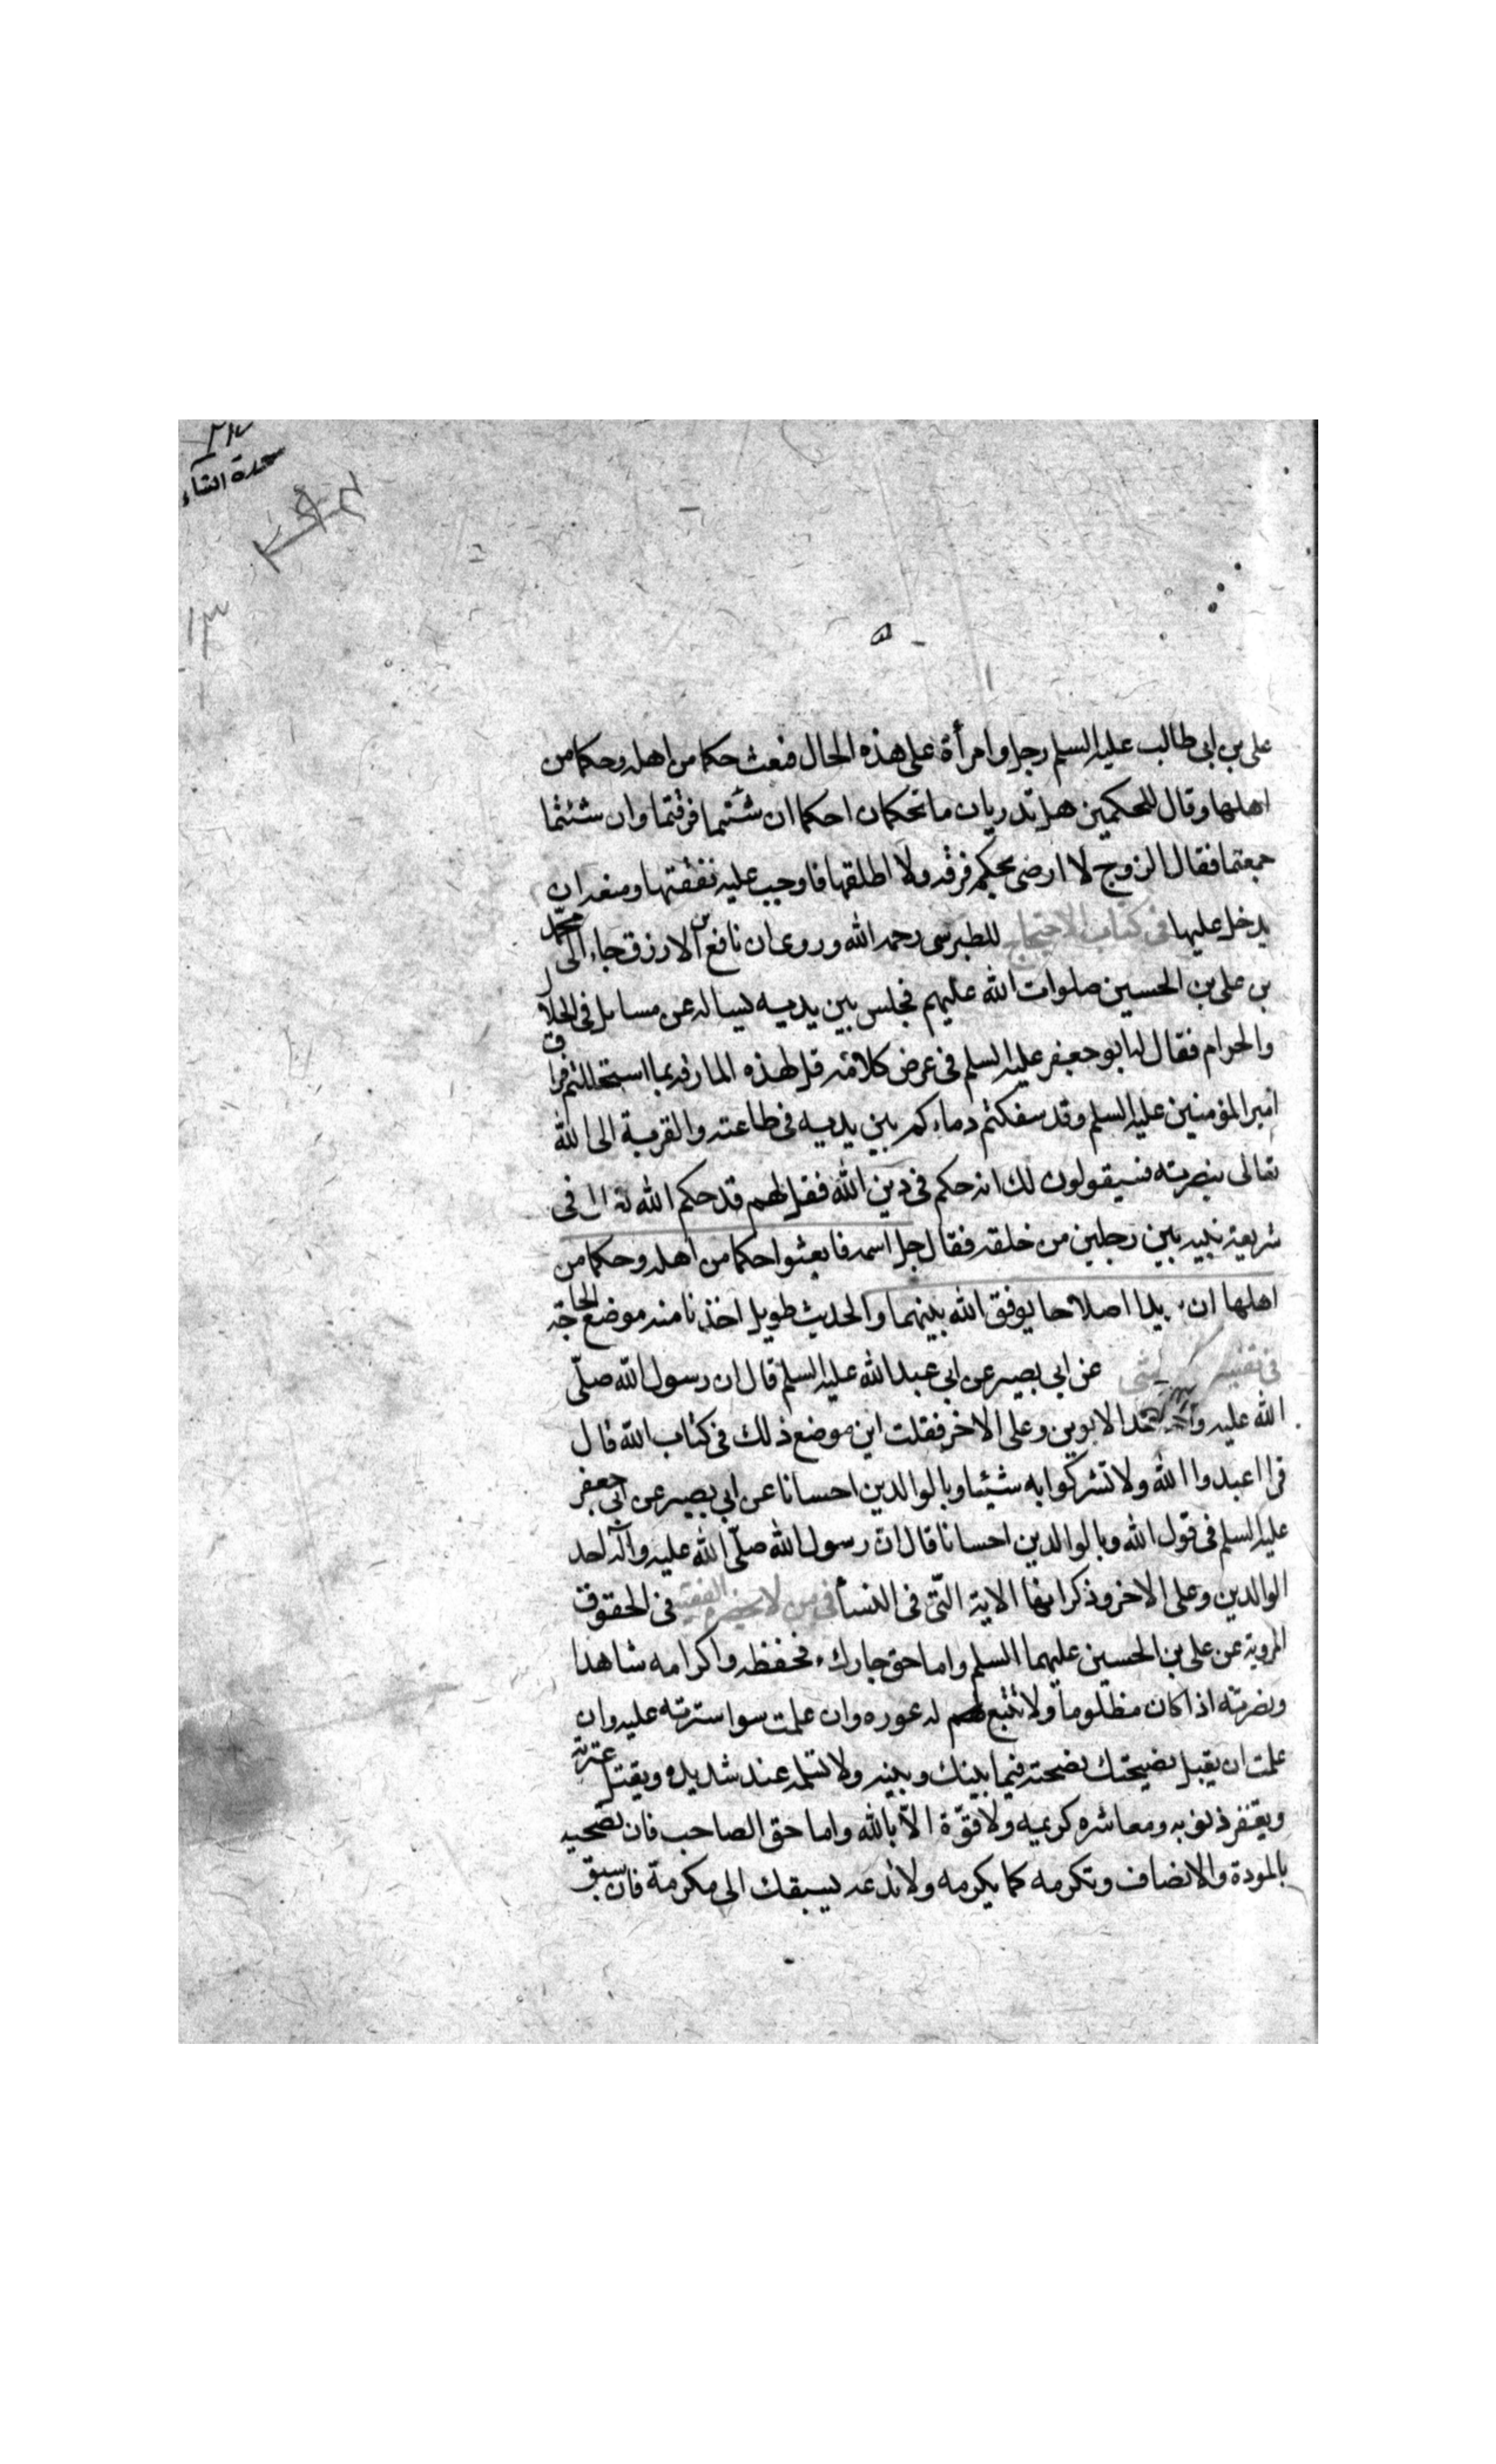 سورة النساء
١٣
على بن ابى طالب عليه السلم رجل وامرأة على هذه الحال فبعث حكما من اهله وحكما من
اهلها وقال للحكمين هل تدريان ما تحكمان احكما ان شئتما فرقتما وان شئتما
جمعتما فقال الزوج لا ارضى بحكم فرقه ولا اطلقها فاوجب عليه نفقتها ومنعه ان
يدخل عليها فى كتاب الاحتجاج للطبرسى رحمه الله وروى ان نافع بن الارزق جاء الى محمّد
بن على بن الحسين صلوات الله عليهم فجلس بين يديه يساله عن مسايل فى الحلال
والحرام فقال له ابو جعفر عليه السلم فى عرض كلامه قل لهذه المارقه بما استحللتم فراق
امير المؤمنين عليه السلم وقد سفكتم دماءكم بين يديه فى طاعته والقربة الى الله
تعالى بنصرته فسيقولون لك انه حكم فى دين الله فقل لهم قد حكم الله تعالى فى
شريعة نبيه بين رجلين من خلقه فقال جل اسمه فابعثوا حكما من اهله وحكما من
اهلها ان يريدا اصلاحا يوفق الله بينهما والحديث طويل اخذنا منه موضع الحاجة
فى تفسير عن ابى بصير عن ابى عبد الله عليه السلم قال ان رسول الله صلّى
الله عليه وآله احد الابوين وعلى الاخر فقلت اين موضع ذلك فى كتاب الله قال
قرا اعبدوا الله ولا تشركوا به شيئا وبالوالدين احسانا عن ابى بصير عن ابى جعفر
عليه السلم فى قول الله وبالوالدين احسانا قال ان رسول الله صلّى الله عليه وآله احد
الوالدين وعلى الاخر وذكر انها الاية التى فى النسأ فى من لا يحضره الفقيه فى الحقوق
المروية عن على بن الحسين عليهما السلم واما حق جارك فحفظه واكرامه شاهدا
ونصرته اذا كان مظلوما ولا تتبع له عوره وان علمت سوا سترته عليه وان
علمت ان يقبل نصيحتك نصحته فيما بينك وبينه ولا تسلمه عند شديده ويقتل عثرته
ويغفر ذنوبه ومعاشره كريمه ولا قوّة الّا بالله واما حق الصاحب فان تصحبه
بالمودة والانصاف وتكرمه كما يكرمه ولا تدعه يسبقك الى مكرمة فان سبق